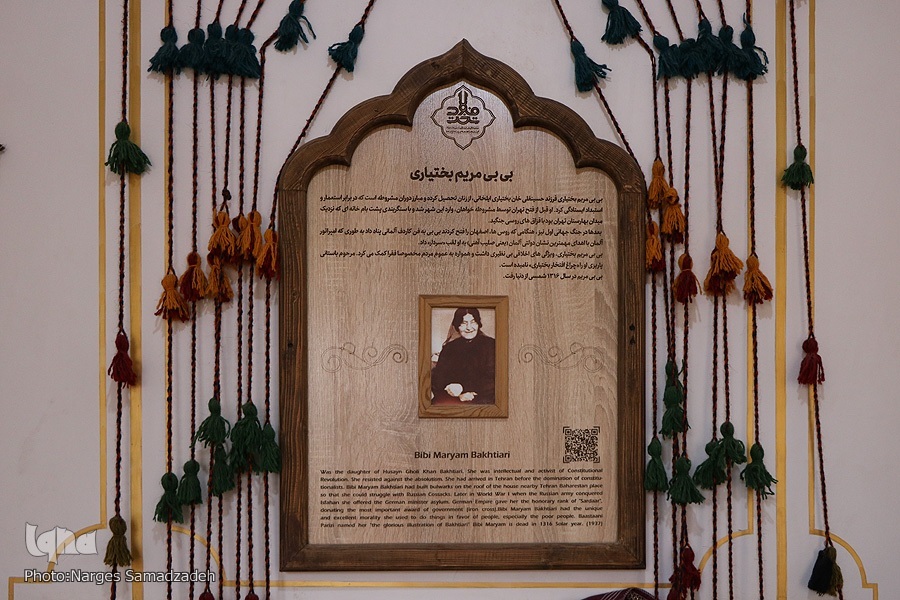 تخت
بی بی مریم بختیاری
بی بی مریم بختیاری فرزند حسینقلی خان بختیاری ایلخانی، از زنان تحصیل کرده و مبارز دوران مشروطه است که در برابر استعمار و
استبداد ایستادگی کرد. او قبل از فتح تهران توسط مشروطه خواهان، وارد این شهر شد و با سنگربندی پشت بام خانه ای که نزدیک
میدان بهارستان تهران بود با قزاق های روسی جنگید.
بعدها در جنگ جهانی اول نیز، هنگامی که روس ها، اصفهان را فتح کردند بی بی به فن کاردف آلمانی پناه داد به طوری که امپراتور
آلمان با اهدای مهمترین نشان دولتی آلمان (یعنی صلیب آهنی) به او لقب «سردار» داد.
بی بی مریم بختیاری، ویژگی های اخلاقی بی نظیری داشت و همواره به عموم مردم مخصوصا فقرا کمک می کرد. مرحوم باستانی
پاریزی او را «چراغ افتخار بختیاری» نامیده است.
بی بی مریم در سال ۱۳۱۶ شمسی از دنیا رفت.
Bibi Maryam Bakhtiari
Was the daughter of Husayn Gholi Khan Bakhtiari. She was intellectual and activist of Constitutional
Revolution. She resisted against the absolutism. She had arrived in Tehran before the domination of constitu
tionalists. Bibi Maryam Bakhtiari had built bulwarks on the roof of the house nearby Tehran Baharestan place
so that she could struggle with Russian Cossacks. Later in World War I when the Russian army conquered
Isfahan she offered the German minister asylum. German Empire gave her the honorary rank of "Sardaar",
donating the most important award of government (iron cross).Bibi Maryam Bakhtiari had the unique
and excellent morality she used to do things in favor of people, especially the poor people. Baastaani
Parizi named her "the glorious illustration of Bakhtiari" Bibi Maryam is dead in 1316 Solar year. (1937)
iqna
Photo:Narges Samadzadeh